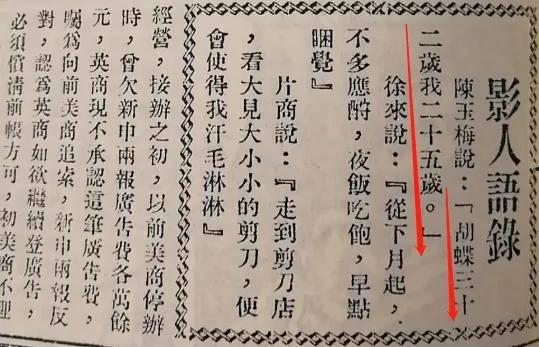 影人語錄
陳玉梅說：「胡蝶三十
二歲我二十五歲。」
徐來說：『從下月起，
不多應酬，夜飯吃飽，早點
睏覺』
片商說：『走到剪刀店
，看大見大小小的剪刀，便
會使得我汗毛淋淋』
經營，接辦之初，以前美商停辦
時，曾欠新申兩報廣告費各萬餘
元，英商現不承認這筆廣告費，
囑爲向前美商追索，新申兩報反
對，認爲英商如欲繼續登廣告，
必須償清前帳方可，初美商不理